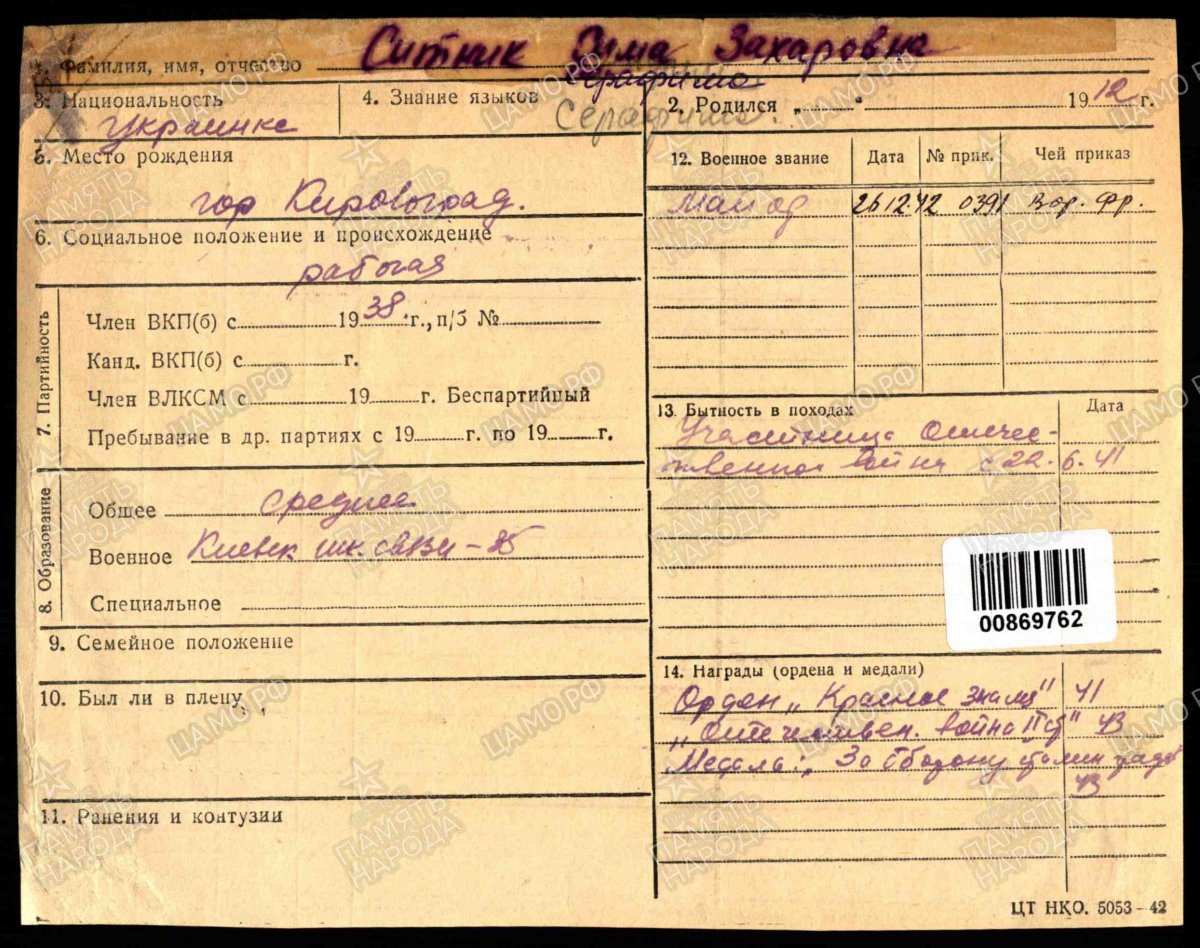 Ситник Сима Захаровна
1. Фамилия, имя, отчество
Серафима
3. Национальность
украинка
4. Знание языков
Серафима.
2. Родился „ “ 1912 г.
5. Место рождения
гор Кировоград.
6. Социальное положение и происхождение
рабочая
7. Партийность
Член ВКП(б) с 1938 г., п/б №
Канд. ВКП(б) с г.
Член ВЛКСМ с 19 г. Беспартийный
Пребывание в др. партиях с 19 г. по 19 г.
8. Образование
Общее среднее
Военное Киевск шк. связи – 35
Специальное
9. Семейное положение
10. Был ли в плену
11. Ранения и контузии
12. Военное звание Дата № прик. Чей приказ
Майор 26.12.42 0391 Вор. Фр.
13. Бытность в походах Дата
Участница Отечес-
твенной войны с 22.6.41
00869762
14. Награды (ордена и медали)
Орден „Красное знамя" 41
„Отечествен. война II ст" 43
Медаль: „За оборону Сталинграда
43
ЦТ НКО. 5053–42
ПАМЯТЬ НАРОДА
ЦАМО.РФ